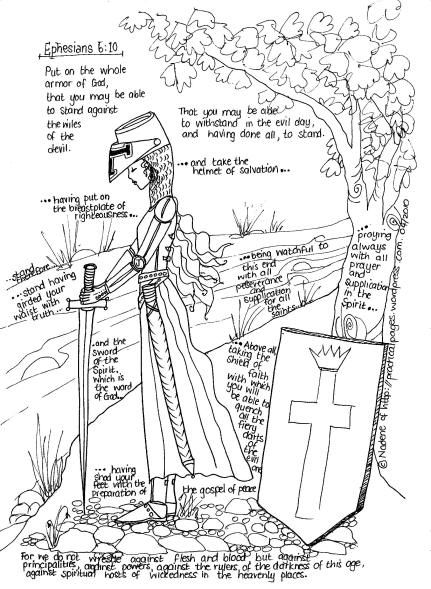 Ephesians 6:10
Put on the whole
armor of God,
that you may be able
to stand against
the wiles
of the
devil.
That you may be able
to withstand in the evil day,
and having done all, to stand.
...and take the
helmet of salvation...
...having put on
the breastplate of
righteousness...
...stand
therefore
...stand having
girded your
waist with
truth...
...being watchful to
this end
with all
perseverance
and
supplication
for all
the saints
...praying
always
with all
prayer
and
supplication
in the
Spirit...
...and the
sword
of the
Spirit,
which is
the word
of God...
...Above all,
taking the
shield of
faith
with which
you will
be able to
quench
all the
fiery
darts
of the
evil
one
...having
shod your
feet with the
preparation of
the gospel of peace
For we do not wrestle against flesh and blood but against
principalities, against powers, against the rulers, of the darkness of this age,
against spiritual hosts of wickedness in the heavenly places.
© Nadene of http://practicalpages.wordpress.com